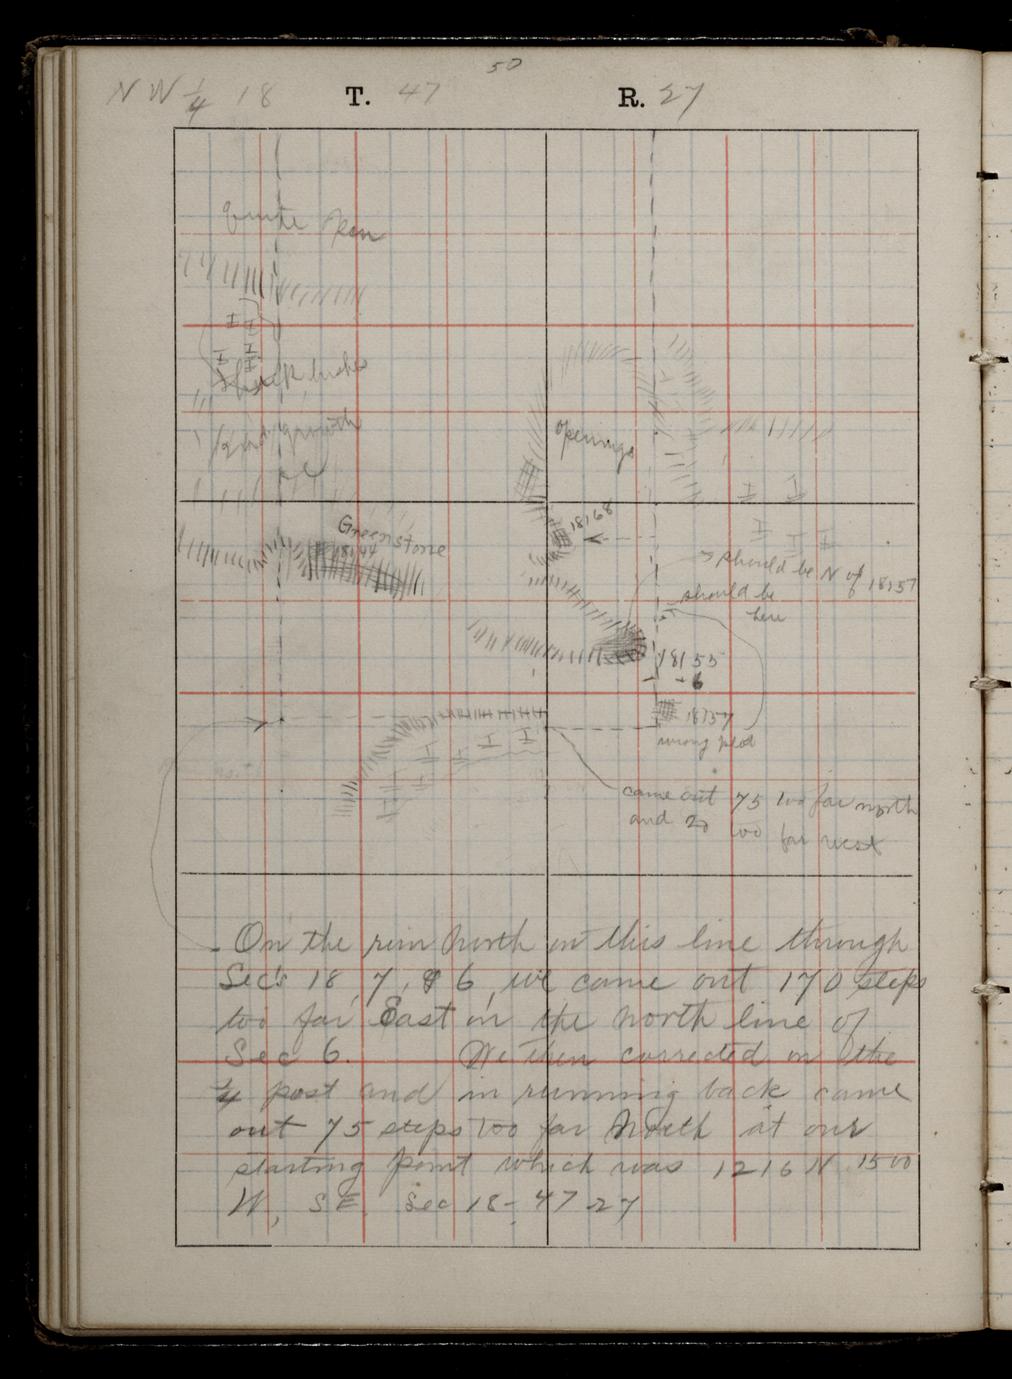 50
NW 1/4 18 T. 47 R. 27
quite
Openings
Greenstone
18144
18168
should be N of 18157
should be
here
18155
6
18157
wrong
came out 75 too far north
and 20 too far west
On the run North on this line through
Sec's 18, 7, & 6, we came out 170 steps
too far East on the North line of
Sec 6. We then corrected on the
1/4 post and in running back came
out 75 steps too far North at our
starting point which was 1216 N 1500
W, SE. Sec 18-47-27